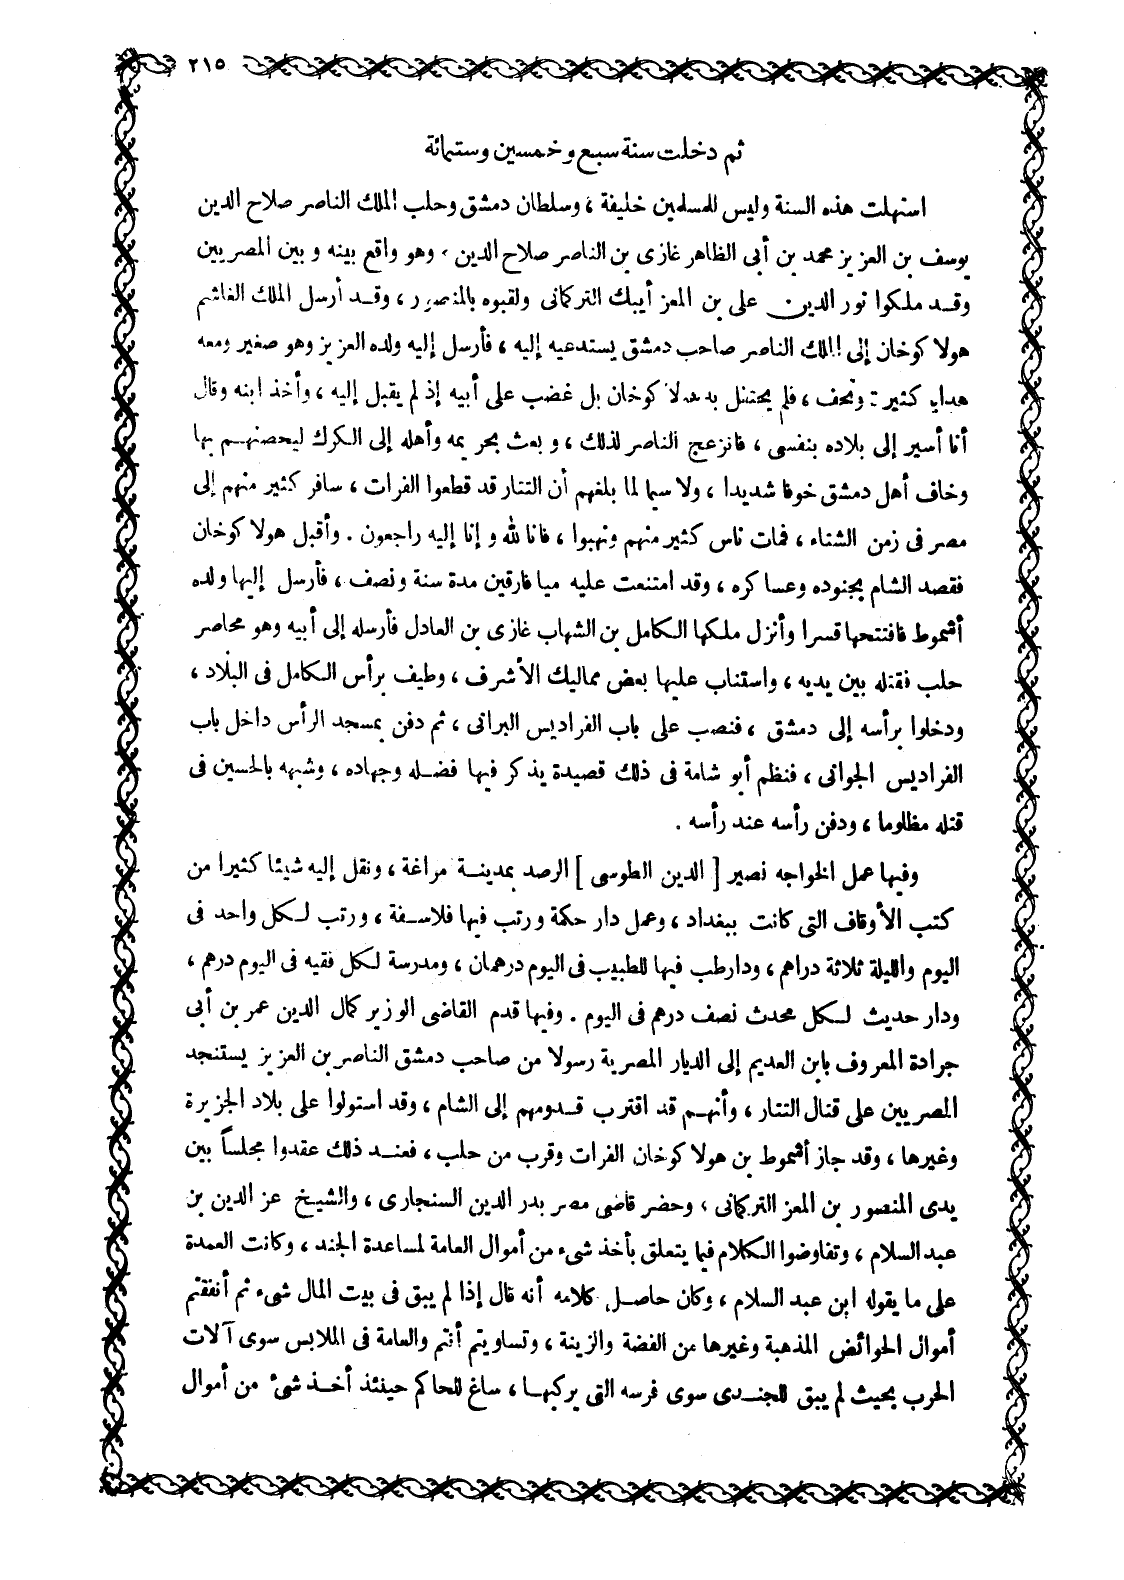 ٢١٥
ثم دخلت سنة سبع وخمسين وستمائة
استهلت هذه السنة وليس للمسلمين خليفة ، وسلطان دمشق وحلب الملك الناصر صلاح الدين
يوسف بن العزيز محمد بن أبى الظاهر غازى بن الناصر صلاح الدين ، وهو واقع بينه وبين المصريين
وقد ملكوا نور الدين على بن المعز أيبك التركمانى ولقبوه بالمنصور ، وقد أرسل الملك الغاشم
هولا كوخان إلى الملك الناصر صاحب دمشق يستدعيه إليه ، فأرسل إليه ولده العزيز وهو صغير ومعه
هدايا كثيرة وتحف ، فلم يحتفل به هولا كوخان بل غضب على أبيه إذ لم يقبل إليه ، وأخذ ابنه وقال
أنا أسير إلى بلاده بنفسى ، فانزعج الناصر لذلك ، وبعث بحريمه وأهله إلى الكرك ليحصنهم بها
وخاف أهل دمشق خوفا شديدا ، ولا سيما لما بلغهم أن التتار قد قطعوا الفرات ، سافر كثير منهم إلى
مصر فى زمن الشتاء ، فمات ناس كثير منهم ونهبوا ، فانا لله وإنا إليه راجعون . وأقبل هولا كوخان
فقصد الشام بجنوده وعساكره ، وقد امتنعت عليه ميا فارقين مدة سنة ونصف ، فأرسل إليها ولده
أشموط فافتتحها قسرا وأنزل ملكها الكامل بن الشهاب غازى بن العادل فأرسله إلى أبيه وهو محاصر
حلب فقتله بين يديه ، واستناب عليها بعض مماليك الأشرف ، وطيف برأس الكامل فى البلاد ،
ودخلوا برأسه إلى دمشق ، فنصب على باب الفراديس البرانى ، ثم دفن بمسجد الرأس داخل باب
الفراديس الجوانى ، فنظم أبو شامة فى ذلك قصيدة يذكر فيها فضله وجهاده ، وشبهه بالحسين فى
قتله مظلوما ، ودفن رأسه عند رأسه .
وفيها عمل الخواجه نصير [ الدين الطوسى ] الرصد بمدينة مراغة ، ونقل إليه شيئا كثيرا من
كتب الأوقاف التى كانت ببغداد ، وعمل دار حكمة ورتب فيها فلاسفة ، ورتب لكل واحد فى
اليوم والليلة ثلاثة دراهم ، ودار طب فيها للطبيب فى اليوم درهمان ، ومدرسة لكل فقيه فى اليوم درهم ،
ودار حديث لكل محدث نصف درهم فى اليوم . وفيها قدم القاضى الوزير كمال الدين عمر بن أبى
جرادة المعروف بابن العديم إلى الديار المصرية رسولا من صاحب دمشق الناصر بن العزيز يستنجد
المصريين على قتال التتار ، وأنهم قد اقترب قدومهم إلى الشام ، وقد استولوا على بلاد الجزيرة
وغيرها ، وقد جاز أشموط بن هولا كوخان الفرات وقرب من حلب ، فعند ذلك عقدوا مجلساً بين
يدى المنصور بن المعز التركمانى ، وحضر قاضى مصر بدر الدين السنجارى ، والشيخ عز الدين بن
عبد السلام ، وتفاوضوا الكلام فيما يتعلق بأخذ شىء من أموال العامة لمساعدة الجند ، وكانت العمدة
على ما يقوله ابن عبد السلام ، وكان حاصل كلامه أنه قال إذا لم يبق فى بيت المال شىء ثم أنفقتم
أموال الحوائض المذهبة وغيرها من الفضة والزينة ، وتساويتم أنتم والعامة فى الملابس سوى آلات
الحرب بحيث لم يبق للجندى سوى فرسه التى يركبها ، ساغ للحاكم حينئذ أخذ شىء من أموال